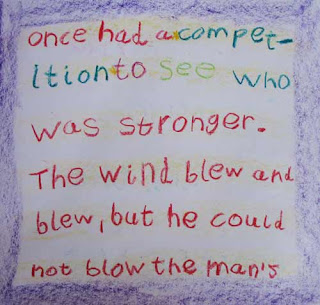 once had a compet-
ition to see who
was stronger.
The wind blew and
blew, but he could
not blow the man's